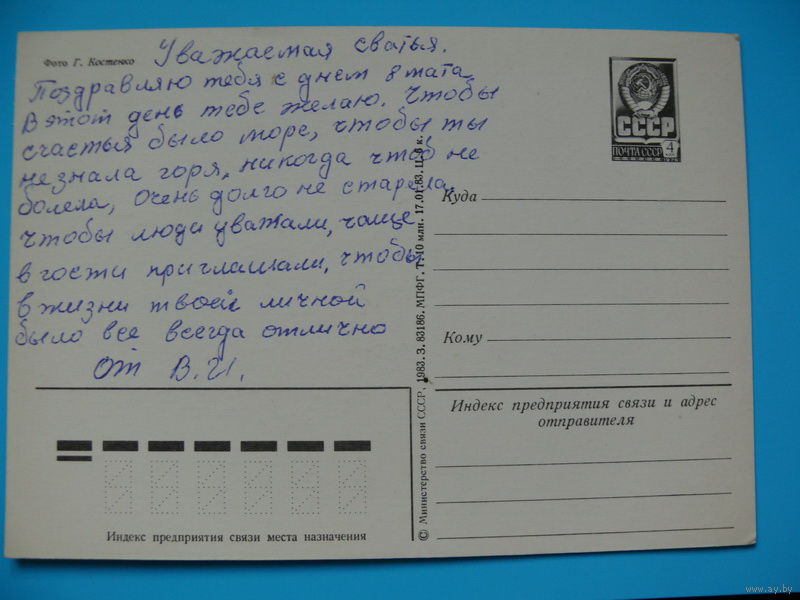 Фото Г. Костенко
Уважаемая сватья.
Поздравляю тебя с днем 8 мата
В этот день тебе желаю. Чтобы
счастья было море, чтобы ты
не знала горя, никогда чтоб не
болела, очень долго не старела,
чтобы люди уважали, чаще
в гости приглашали, чтобы
в жизни твоей личной
было все всегда отлично
От В.И.
СССР
ПОЧТА СССР
4
Куда
Кому
Индекс предприятия связи и адрес
отправителя
© Министерство связи СССР, 1983. З. 83186. МПФГ. Т. 10 млн. 17.01.83. Ц. 6 к.
Индекс предприятия связи места назначения
www.ay.by